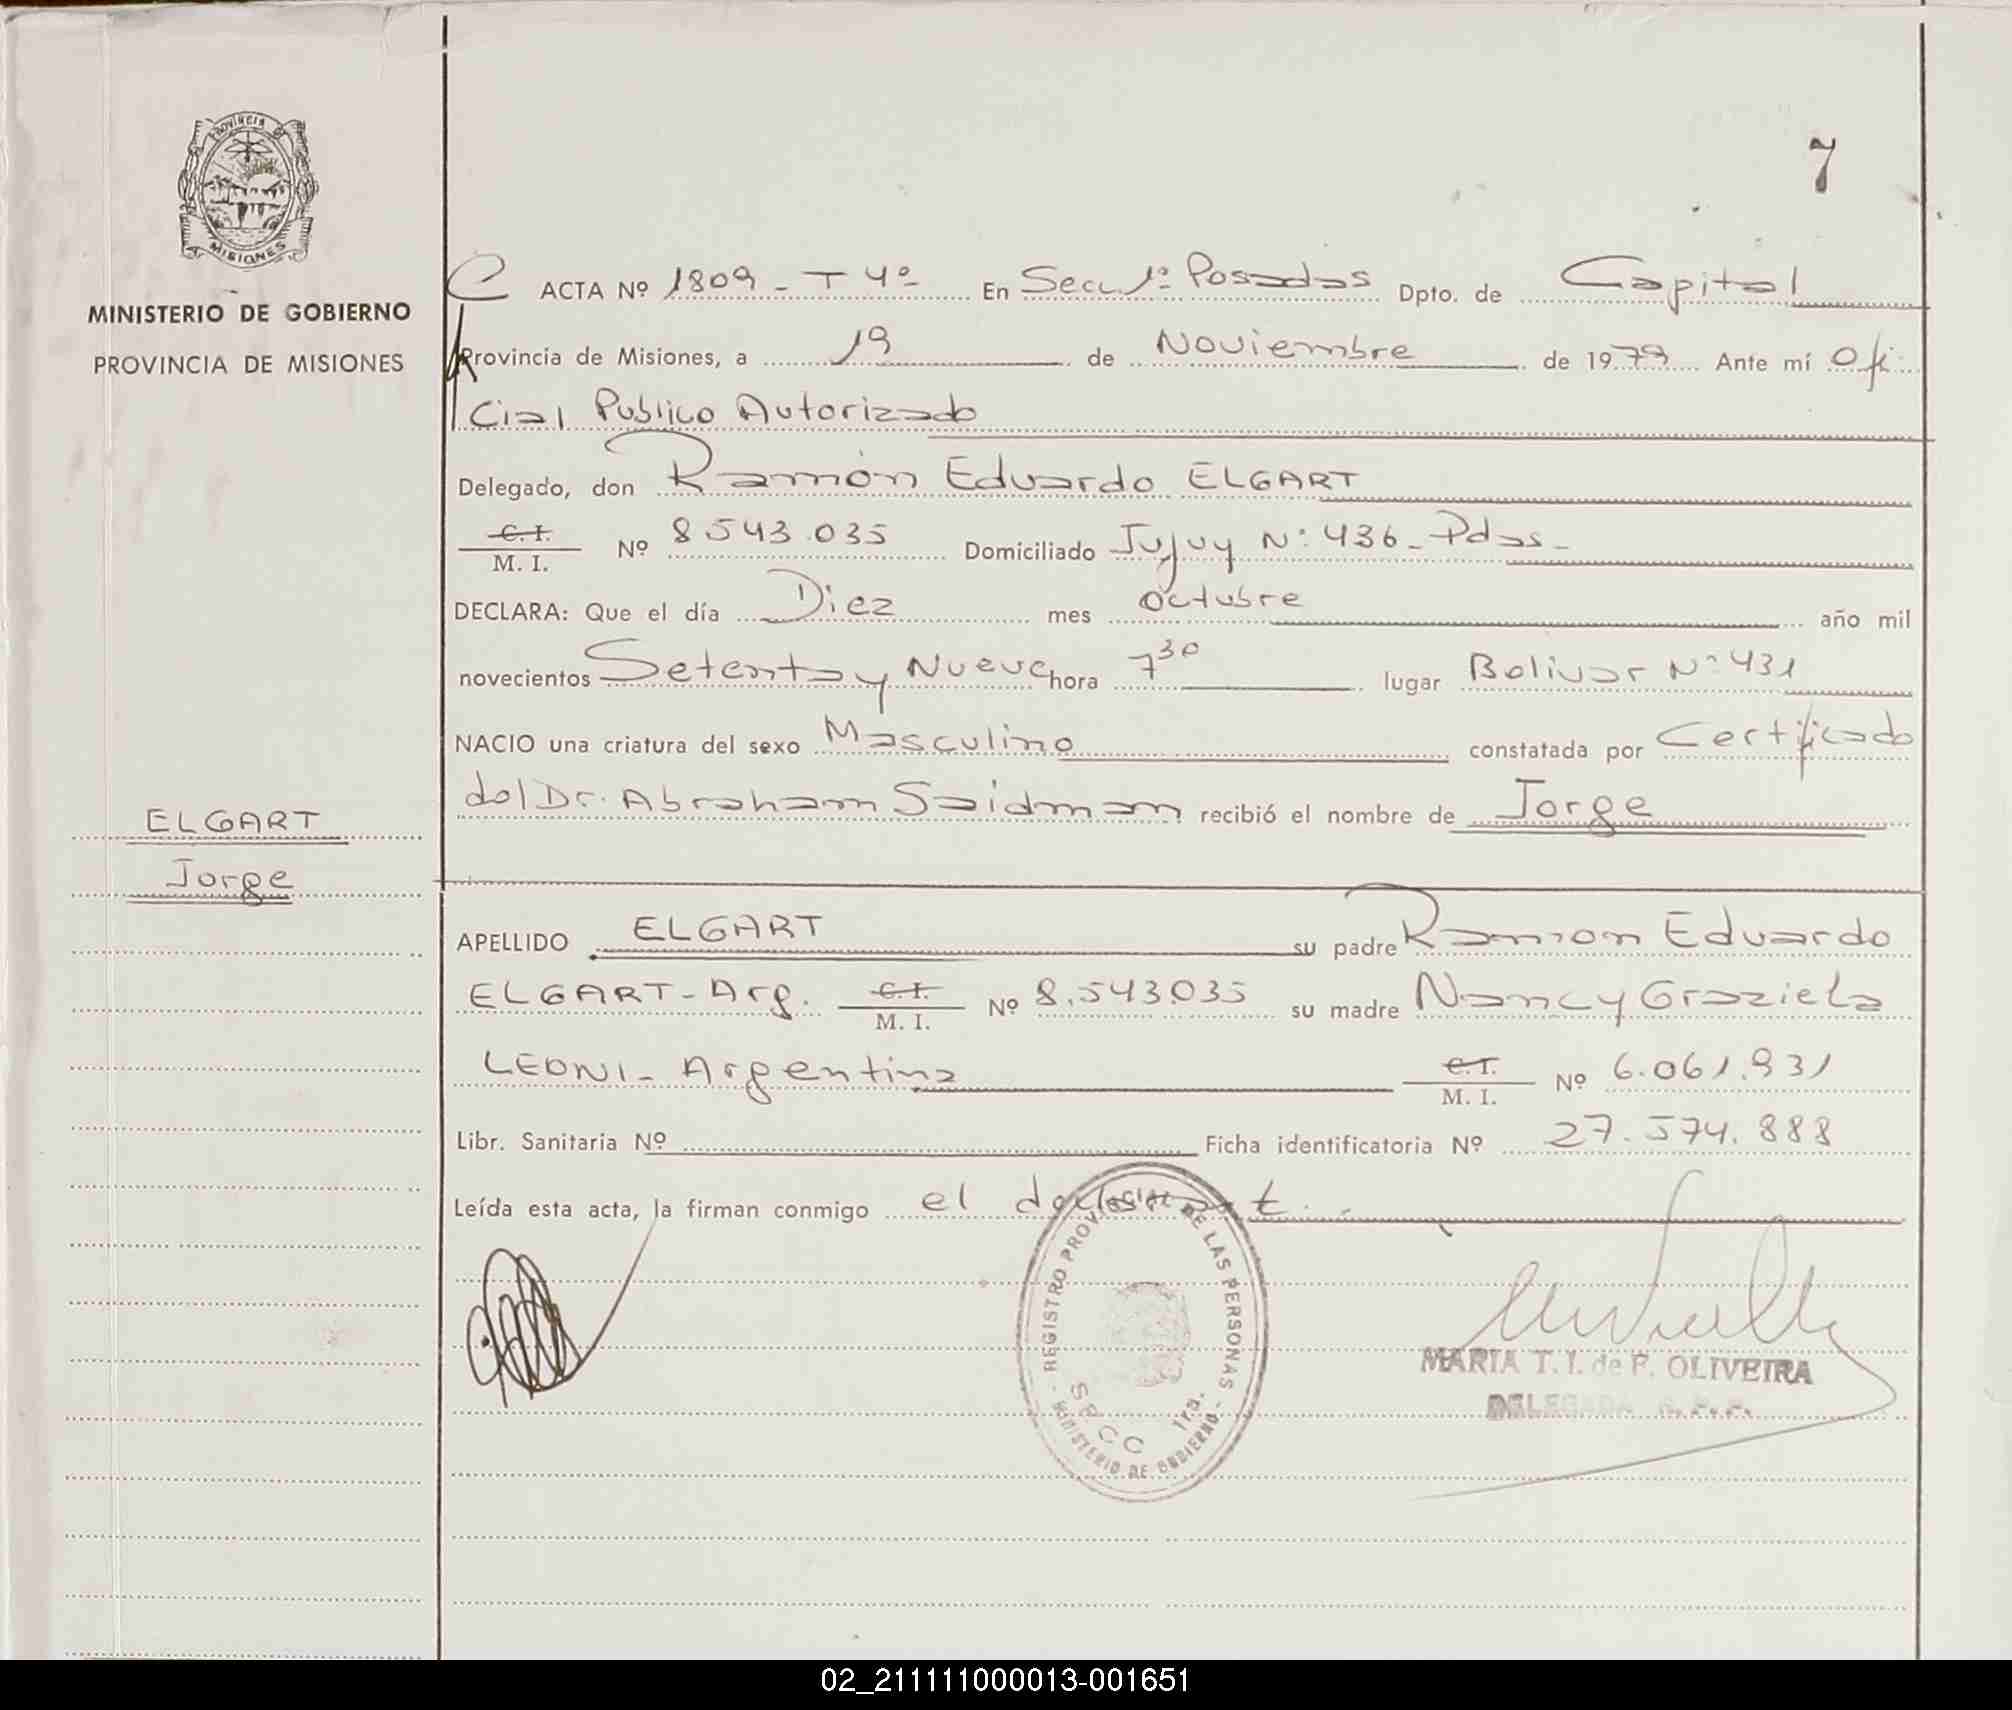 PROVINCIA DE
MISIONES
MINISTERIO DE GOBIERNO
PROVINCIA DE MISIONES
ELGART
Jorge
7
ACTA Nº 1809 - T 4º En Secc. 1º Posadas Dpto. de Capital
Provincia de Misiones, a 19 de Noviembre de 1979 Ante mí Ofi
cial Publico Autorizado
Delegado, don Ramón Eduardo ELGART
C. I.
M. I. Nº 8543.035 Domiciliado Jujuy Nº 436 - Pdas -
DECLARA: Que el día Diez mes octubre año mil
novecientos Setenta y Nueve hora 7 30 lugar Bolivar Nº 431
NACIO una criatura del sexo Masculino constatada por Certificado
del Dr. Abraham Saidman recibió el nombre de Jorge
APELLIDO ELGART su padre Ramon Eduardo
ELGART - Arg. C. I. M. I. Nº 8.543035 su madre Nancy Graziela
LEONI - Argentina C. I. M. I. Nº 6.061.931
Libr. Sanitaria Nº Ficha identificatoria Nº 27.574.888
Leída esta acta, la firman conmigo el declarant.
REGISTRO PROVINCIAL DE LAS PERSONAS
SECC 1ra.
MINISTERIO DE GOBIERNO
MARIA T. I. de P. OLIVEIRA
DELEGADA R. P. P.
02_211111000013-001651